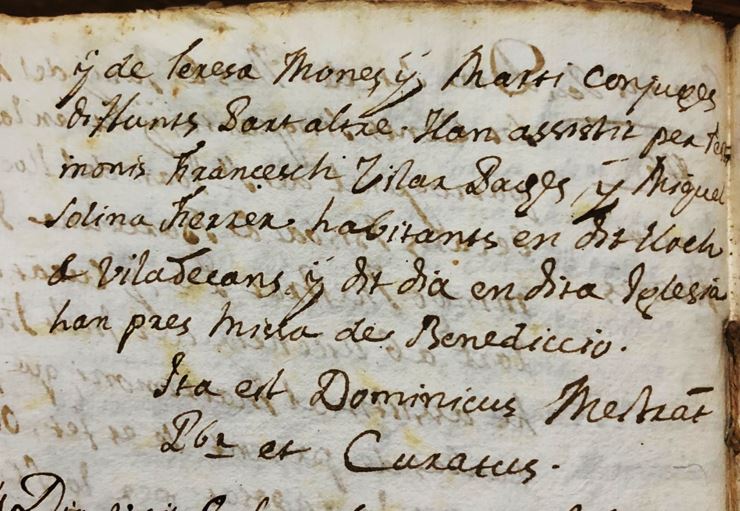 ÿ de Teresa Mones ÿ Marti conjuges
difunts Part altre. Han assistit per tes
monis Francesch Vilar Pages ÿ Miquel
Solina Ferrer habitants en dit lloch
de Viladecans ÿ dit dia en dita Iglesia
han pres Missa de Benediccio.
Ita est Dominicus Mestrat
Pbr et Curatus.